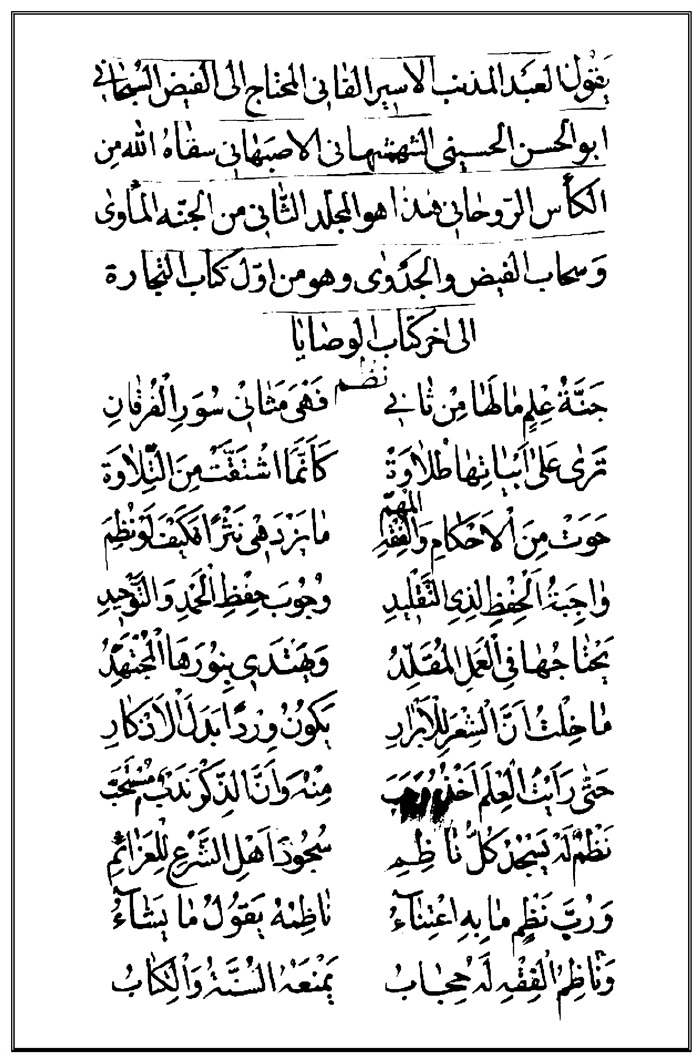 يقول العبد المذنب الاسير الفاني المحتاج الى الفيض السبحاني
ابو الحسن الحسيني التهشيهاني الاصبهاني سقاه الله من
الكأس الروحاني هذا هو المجلد الثاني من الجنه المأوى
و سحاب الفيض و الجدوى و هو من اول كتاب التجارة
الى اخر كتاب الوصايا
نظم
جَنَّةُ عِلْمٍ مٰا لَهٰا مِنْ ثٰانِي فَهْيَ مَثٰانِي سُوَرِ الْفُرْقٰانِ
تَرىٰ عَلىٰ اَبْيٰاتِهٰا طُلاٰوَةْ كَاَنَّمَا اشْتَقَّتْ مِنَ التِّلاٰوَة
حَوَتْ مِنَ الْاَحْكٰامِ وَالْفِقْهِ المُهِمّ مٰا يَزْدَهْي نَثْرًا فَكَيْفَ لَوْ نُظِمَ
وٰاجِبَةُ الْحِفْظِ لِذِي التَّقْلِيدِ وُجُوبَ حِفْظِ الْحَمْدِ وَالتَّوْحِيدِ
يَحْتٰاجُهٰا فِي الْعَمَلِ الْمُقَلِّدُ وَيَهْتَدي بِنُورِهَا الْمُجْتَهِدُ
مٰا خِلْتُ اَنَّ الشِّعْرَ لِلْاَبْرٰارِ يَكُونُ وِرْدًا بَدَلَ الْاَذْكٰارِ
حَتّٰى رَاَيْتُ الْعِلْمَ اَخْذُهُ وَجَبَ مِنْهُ وَاَنَّ الذِّكْرَ نَدْبٌ مُسْتَحَبّ
نَظْمٌ لَهُ يَسْجُدُ كُلُّ نٰاظِمِ سُجُودَ اَهْلِ الشَّرْعِ لِلْعَزٰائِمِ
وَرُبَّ نَظْمٍ مٰا بِهِ اعْتِنٰاءُ نٰاظِمُهُ يَقُولُ مٰا يَشٰاءُ
وَنٰاظِمُ الْفِقْهِ لَهُ حِجٰابُ يَمْنَعُهُ السُّنَّةُ وَالْكِتٰابُ